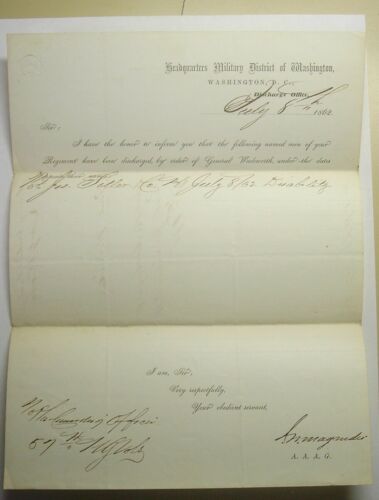 Headquarters Military District of Washington,
WASHINGTON, D. C.
Discharge Office,
July 8th 1862
Sir:
I have the honor to inform you that the following named men of your
Regiment have been discharged, by order of General Wadsworth, under the date
Co. July 8/62 Disability
I am, Sir,
Very respectfully,
Your obedient servant,
Commanding Officer
57th N.Y. Vols
A. A. A. G.